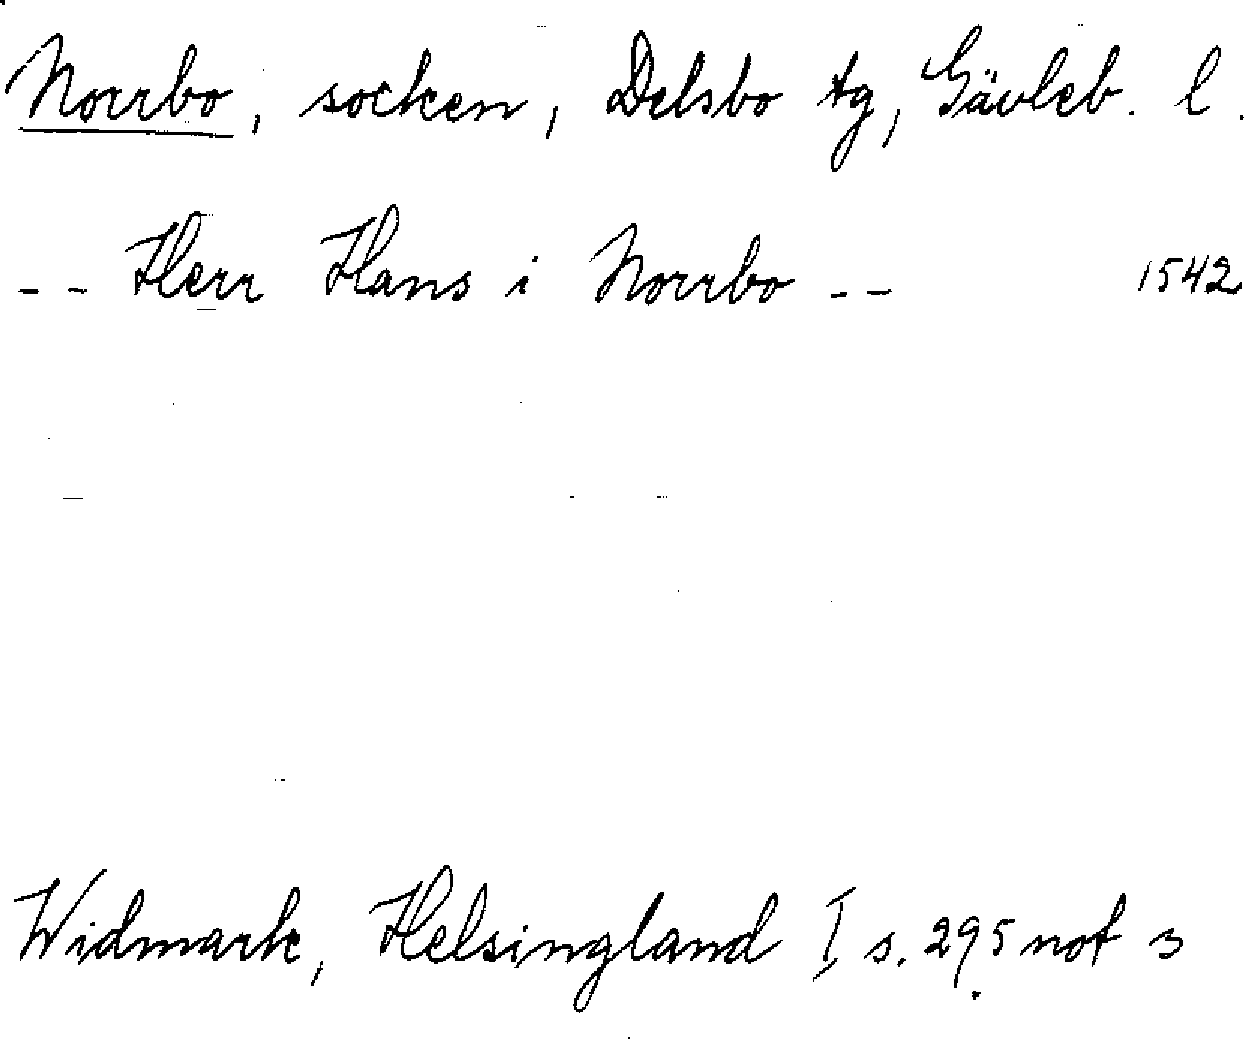 Norrbo, socken, Delsbo tg, Gävleb. l.
-- Herr Hans i Norrbo -- 1542
Widmark, Helsingland I s. 295 not 3